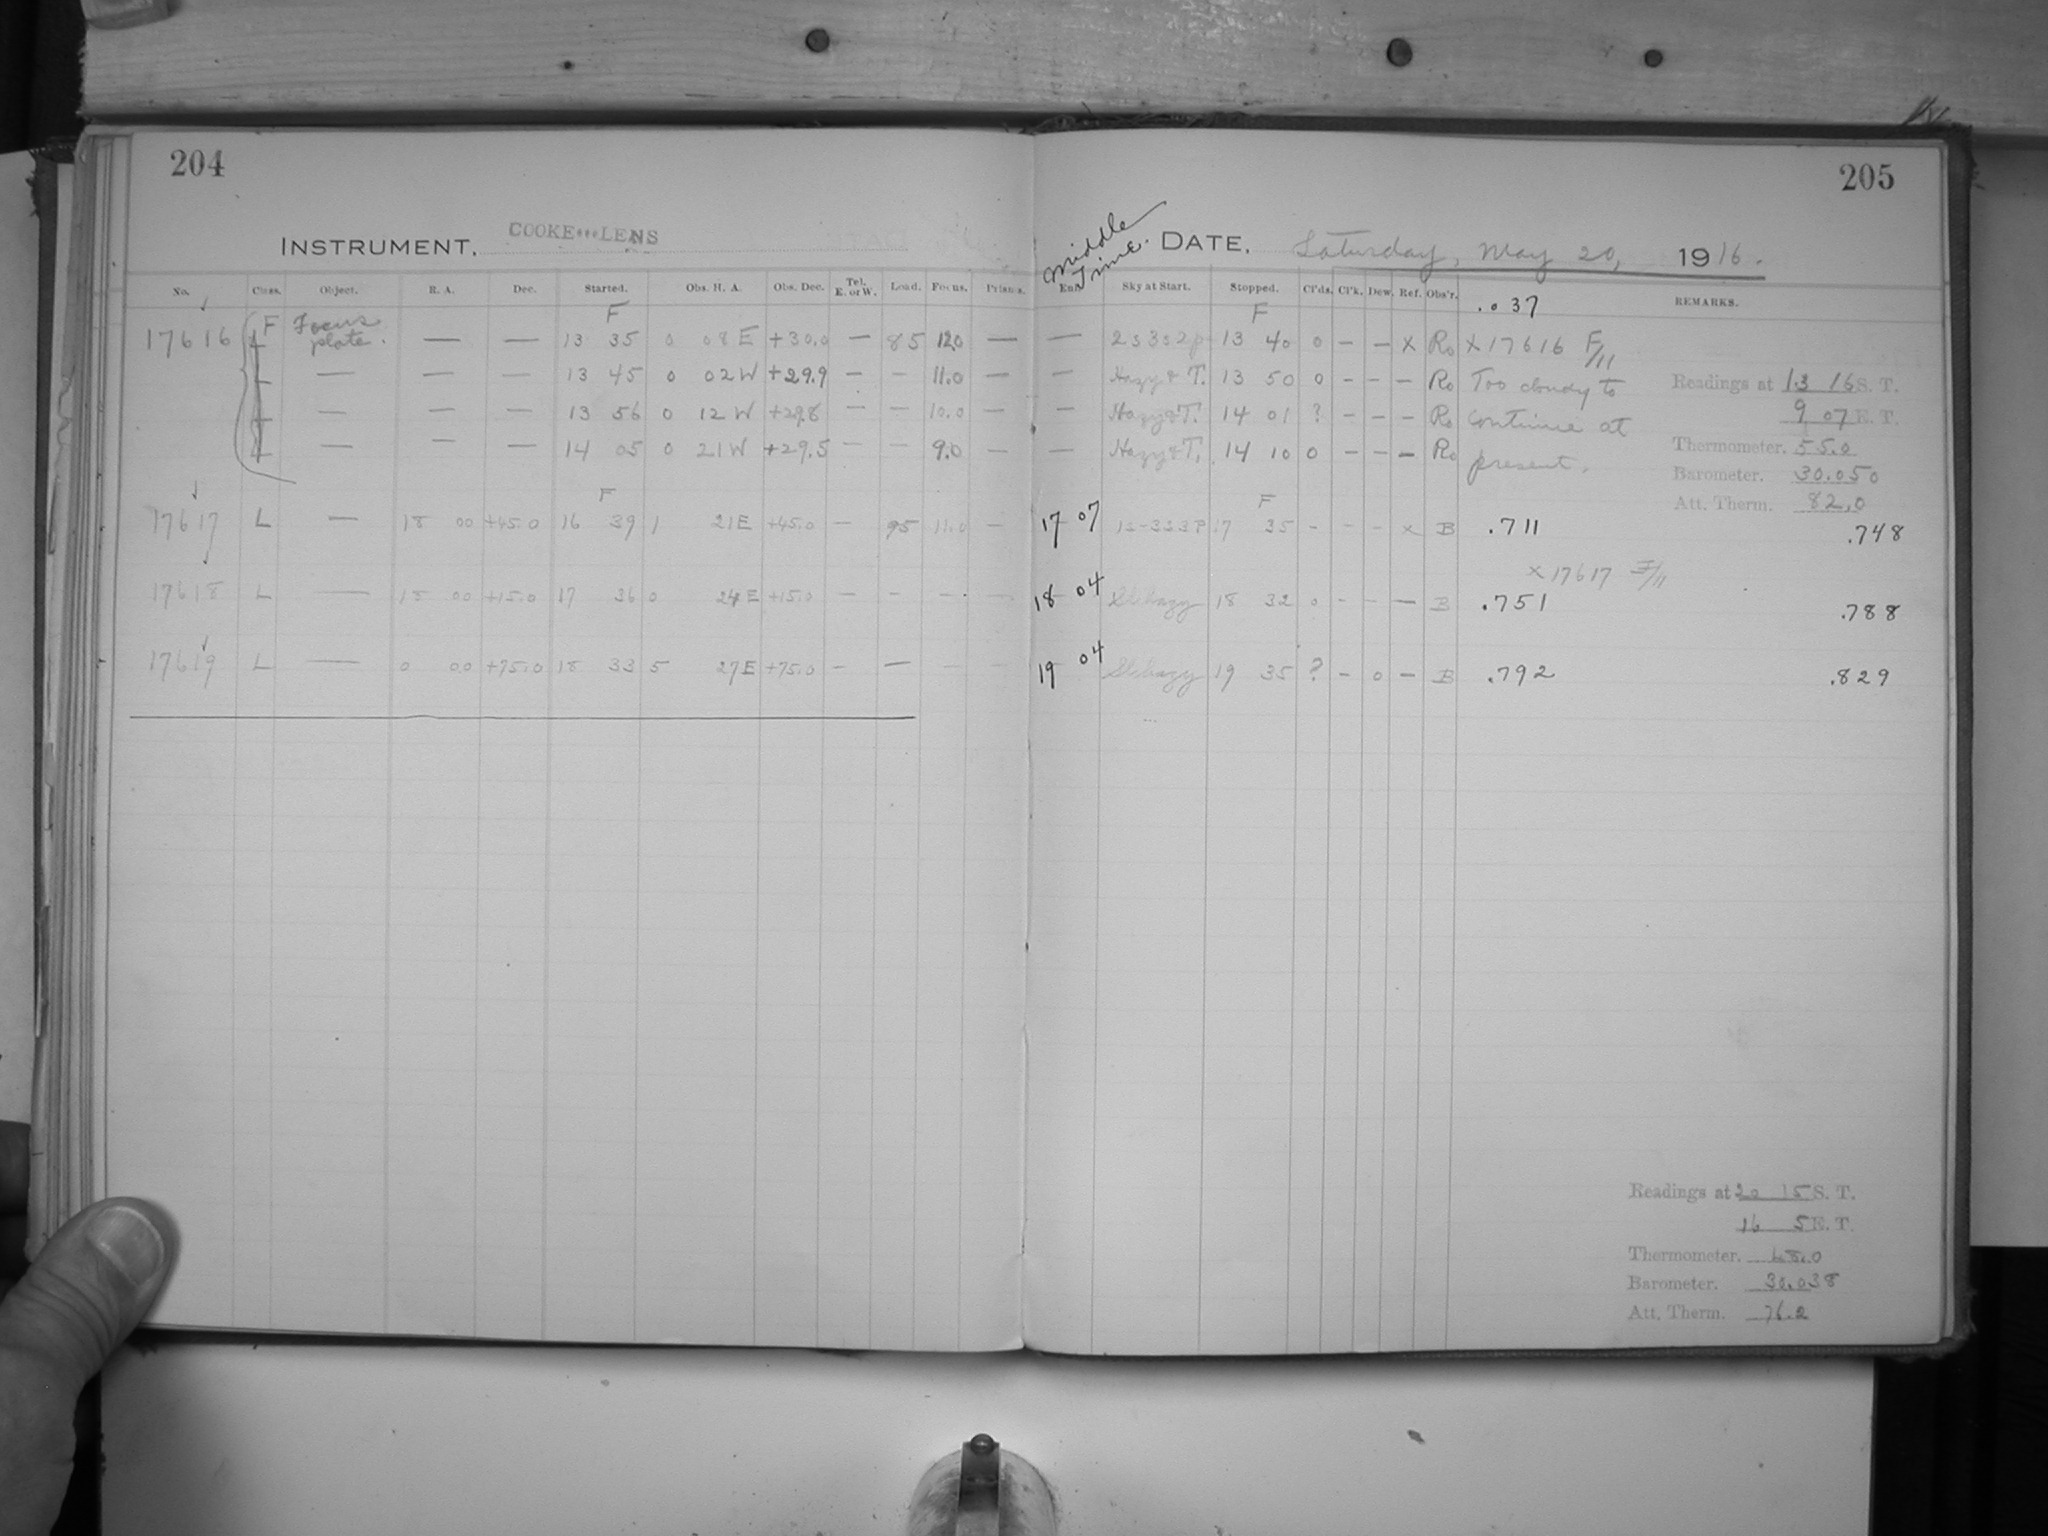 204
205
INSTRUMENT, COOKE LENS
Middle Time. DATE, Saturday, May 20, 1916.
No. Class. Object. R. A. Dec. Started. Obs. H. A. Obs. Dec. Tel. E. or W. Load. Focus. Prisms. End Sky at Start. Stopped. Cl'ds. Cl'k. Dew. Ref. Obs'r. .037 REMARKS.
F F
17616 F Focus plate. — — 13 35 0 08 E +30.0 — 85 12.0 — — 2s3s2p 13 40 0 — — X Ro X 17616 F/11
L — — — 13 45 0 02 W +29.9 — — 11.0 — — Hazy & T. 13 50 0 - - - Ro Too cloudy to
— — — 13 56 0 12 W +29.8 — — 10.0 — — Hazy & T. 14 01 ? - - - Ro continue at
— — — 14 05 0 21 W +29.5 — — 9.0 — — Hazy & T. 14 10 0 - - - Ro present.
Readings at 13 16 S. T.
9 07 E. T.
Thermometer. 55.0
Barometer. 30.050
Att. Therm. 82.0
F F
17617 L — 18 00 +45.0 16 39 1 21 E +45.0 — 95 11.0 — 17 07 17 35 - - - X B .711 .748
X 17617 F/11
17618 L — 18 00 +15.0 17 36 0 24 E +15.0 — - - - 18 04 Sl. hazy 18 32 0 - - — B .751 .788
17619 L — 0 00 +75.0 18 33 5 27 E +75.0 — — - - 19 04 Sl. hazy 19 35 ? - 0 - B .792 .829
Readings at 20 15 S. T.
16 5 E. T.
Thermometer.
Barometer. 30.038
Att. Therm. 76.2